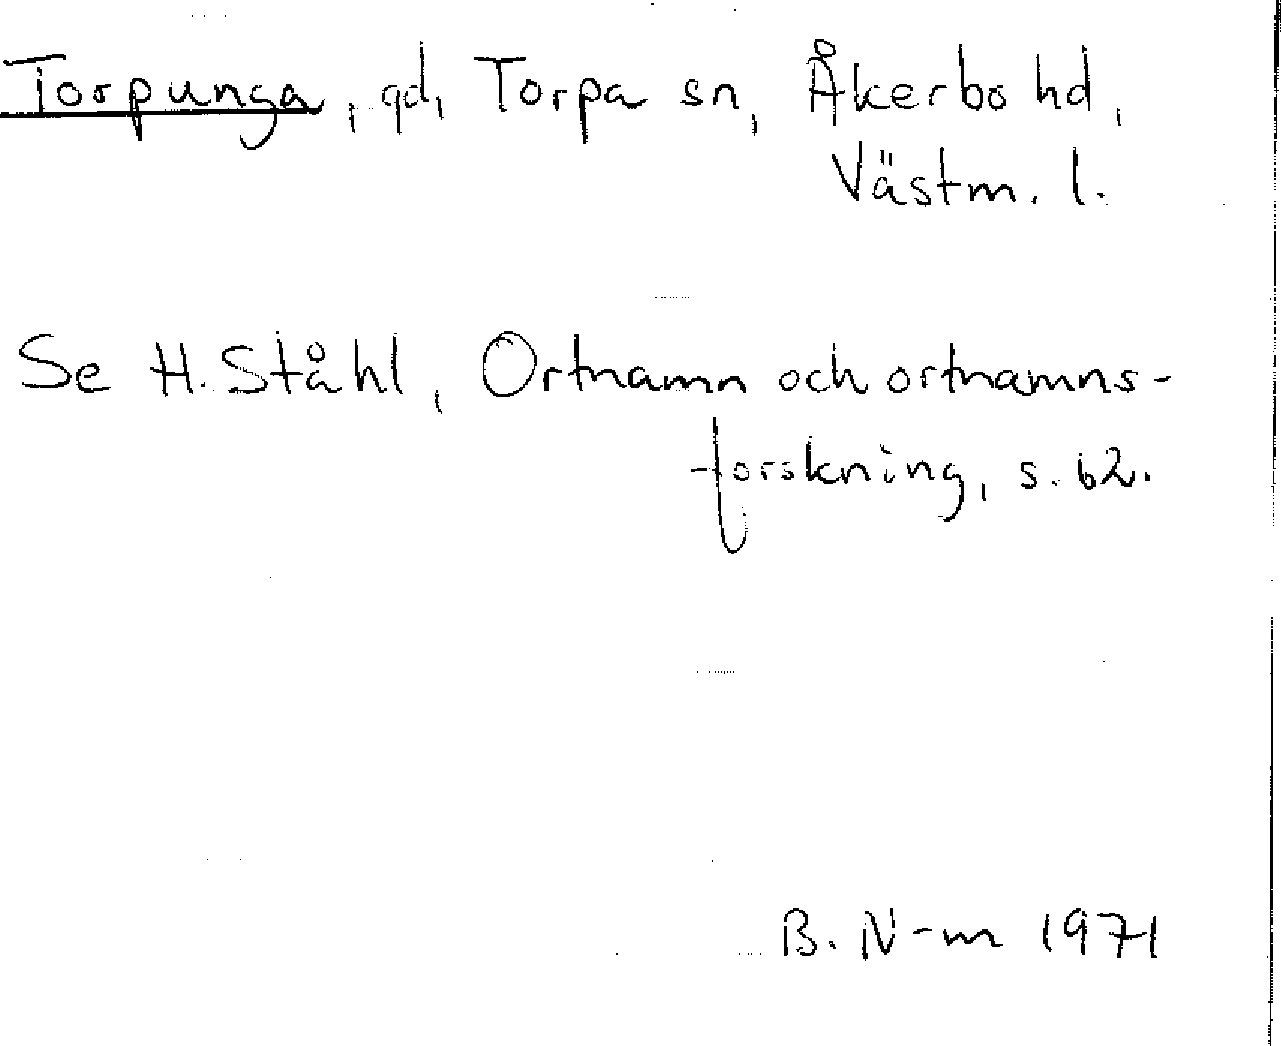 Torpunga, gd, Torpa sn, Åkerbo hd,
Västm. l.
Se H. Ståhl, Ortnamn och ortnamns-
forskning, s. 62.
B. N-m 1971